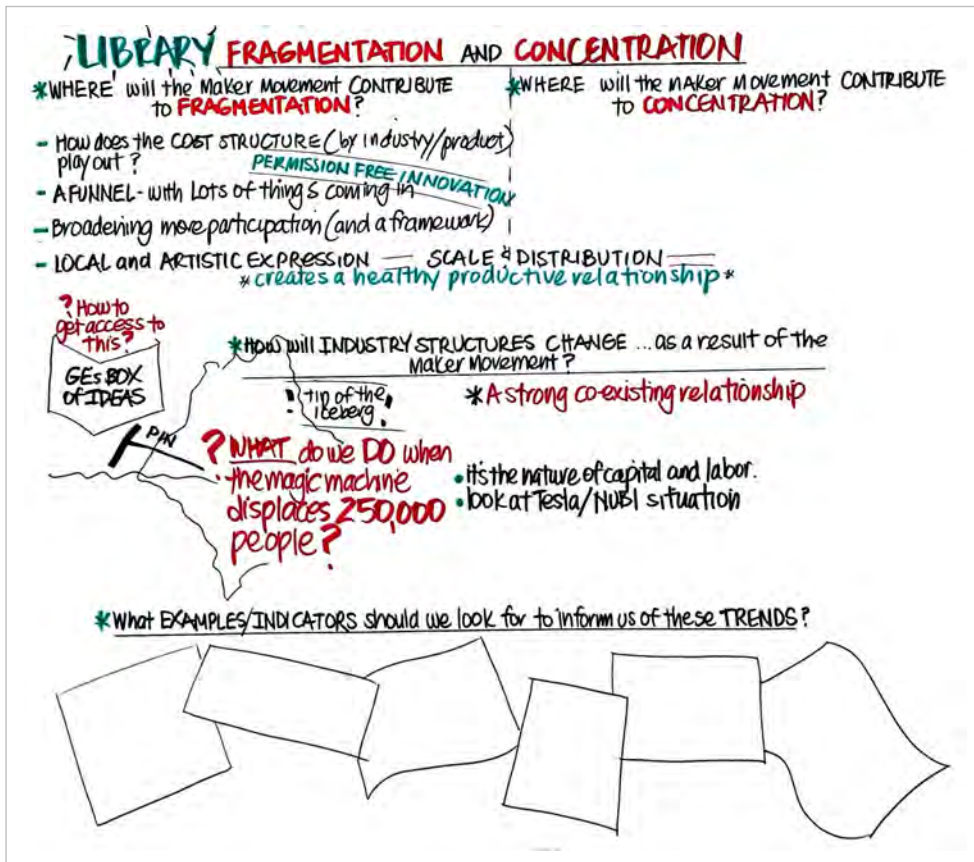 LIBRARY FRAGMENTATION AND CONCENTRATION
*WHERE will the Maker Movement CONTRIBUTE
to FRAGMENTATION?
*WHERE will the MAKER MOVEMENT CONTRIBUTE
to CONCENTRATION?
- How does the COST STRUCTURE (by industry/product)
play out?
PERMISSION FREE INNOVATION
- A FUNNEL - with Lots of things coming in
- Broadening more participation (and a framework)
- LOCAL and ARTISTIC EXPRESSION — SCALE & DISTRIBUTION —
* creates a healthy productive relationship *
? How to
get access to
this?
GEs BOX
of IDEAS
PIN
*HOW will INDUSTRY STRUCTURES CHANGE ... as a result of the
Maker Movement?
! tip of the !
iceberg
*A strong co-existing relationship
? WHAT do we DO when
the magic machine
displaces 250,000
people?
• it's the nature of capital and labor.
• look at Tesla/ situation
*What EXAMPLES/INDICATORS should we look for to inform us of these TRENDS?